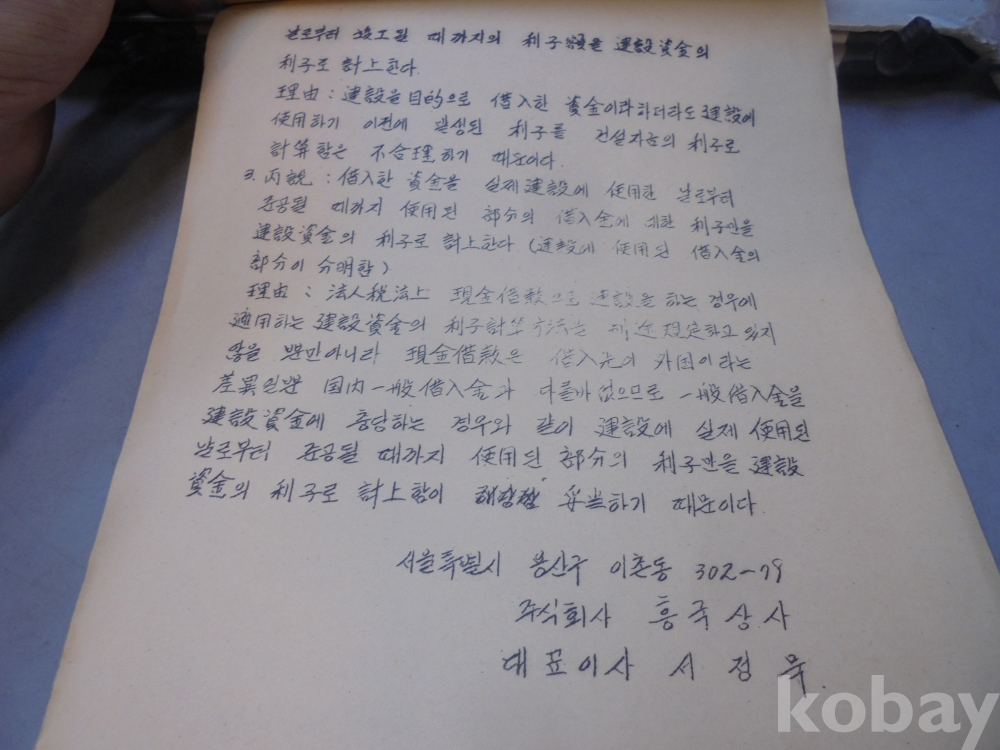 날로부터 竣工될 때까지의 利子額을 建設資金의
利子로 計上한다.
理由 : 建設을 目的으로 借入한 資金이라하더라도 建設에
使用하기 이전에 발생된 利子를 건설자금의 利子로
計算함은 不合理하기 때문이다.
3. 丙說 : 借入한 資金을 실제 建設에 使用한 날로부터
준공될 때까지 使用된 部分의 借入金에 대한 利子만을
建設資金의 利子로 計上한다 (建設에 使用된 借入金의
部分이 分明함)
理由 : 法人税法上 現金借款으로 建設을 하는 경우에
適用하는 建設資金의 利子計算方法은 規定하고 있지
않을 뿐만아니라 現金借款은 借入先이 外国이라는
差異일뿐 国内一般借入金과 다를바 없으므로 一般借入金을
建設資金에 충당하는 경우와 같이 建設에 실제 使用된
날로부터 준공될 때까지 使用된 部分의 利子만을 建設
資金의 利子로 計上함이 妥当하기 때문이다.
서울특별시 용산구 이촌동 302-79
주식회사 흥국상사
대표이사 서정묵
kobay